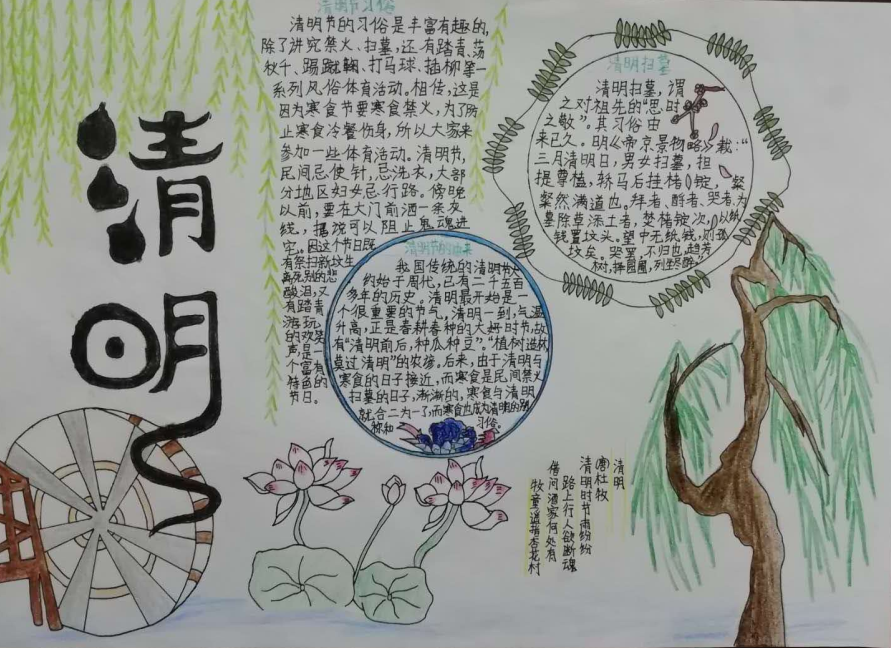 清明
清明节习俗
清明节的习俗是丰富有趣的,
除了讲究禁火、扫墓,还有踏青、荡
秋千、踢蹴鞠、打马球、插柳等一
系列风俗体育活动。相传,这是
因为寒食节要寒食禁火,为了防
止寒食冷餐伤身,所以大家来
参加一些体育活动。清明节,
民间忌使针,忌洗衣,大部
分地区妇女忌行路。傍晚
以前,要在大门前洒一条灰
线,据说可以阻止鬼魂进
宅。因这个节日既
有祭扫新坟生
离死别的悲
酸泪,又
有踏青
游玩
的欢笑
声,是一
个富有
特色的
节日。
清明节的由来
我国传统的清明节大
约始于周代,已有二千五百
多年的历史。清明最开始是一
个很重要的节气,清明一到,气温
升高,正是春耕春种的大好时节,故
有“清明前后,种瓜种豆”。“植树造林,
莫过清明”的农谚。后来,由于清明与
寒食的日子接近,而寒食是民间禁火
扫墓的日子,渐渐的,寒食与清明
就合二为一了,而寒食也成为清明的别
称,和习俗。
清明扫墓
清明扫墓,谓
之对祖先的“思时
之敬”。其习俗由
来已久。明《帝京景物略》载:“
三月清明日,男女扫墓,担
提尊榼,轿马后挂楮锭,粲
粲然满道也。拜者、酹者、哭者、为
墓除草添土者,焚楮锭次,以纸
钱置坟头。望中无纸钱,则孤
坟矣。哭罢,不归也,趋芳
树,择园圃,列坐尽醉。”
清明
唐 杜牧
清明时节雨纷纷
路上行人欲断魂
借问酒家何处有
牧童遥指杏花村